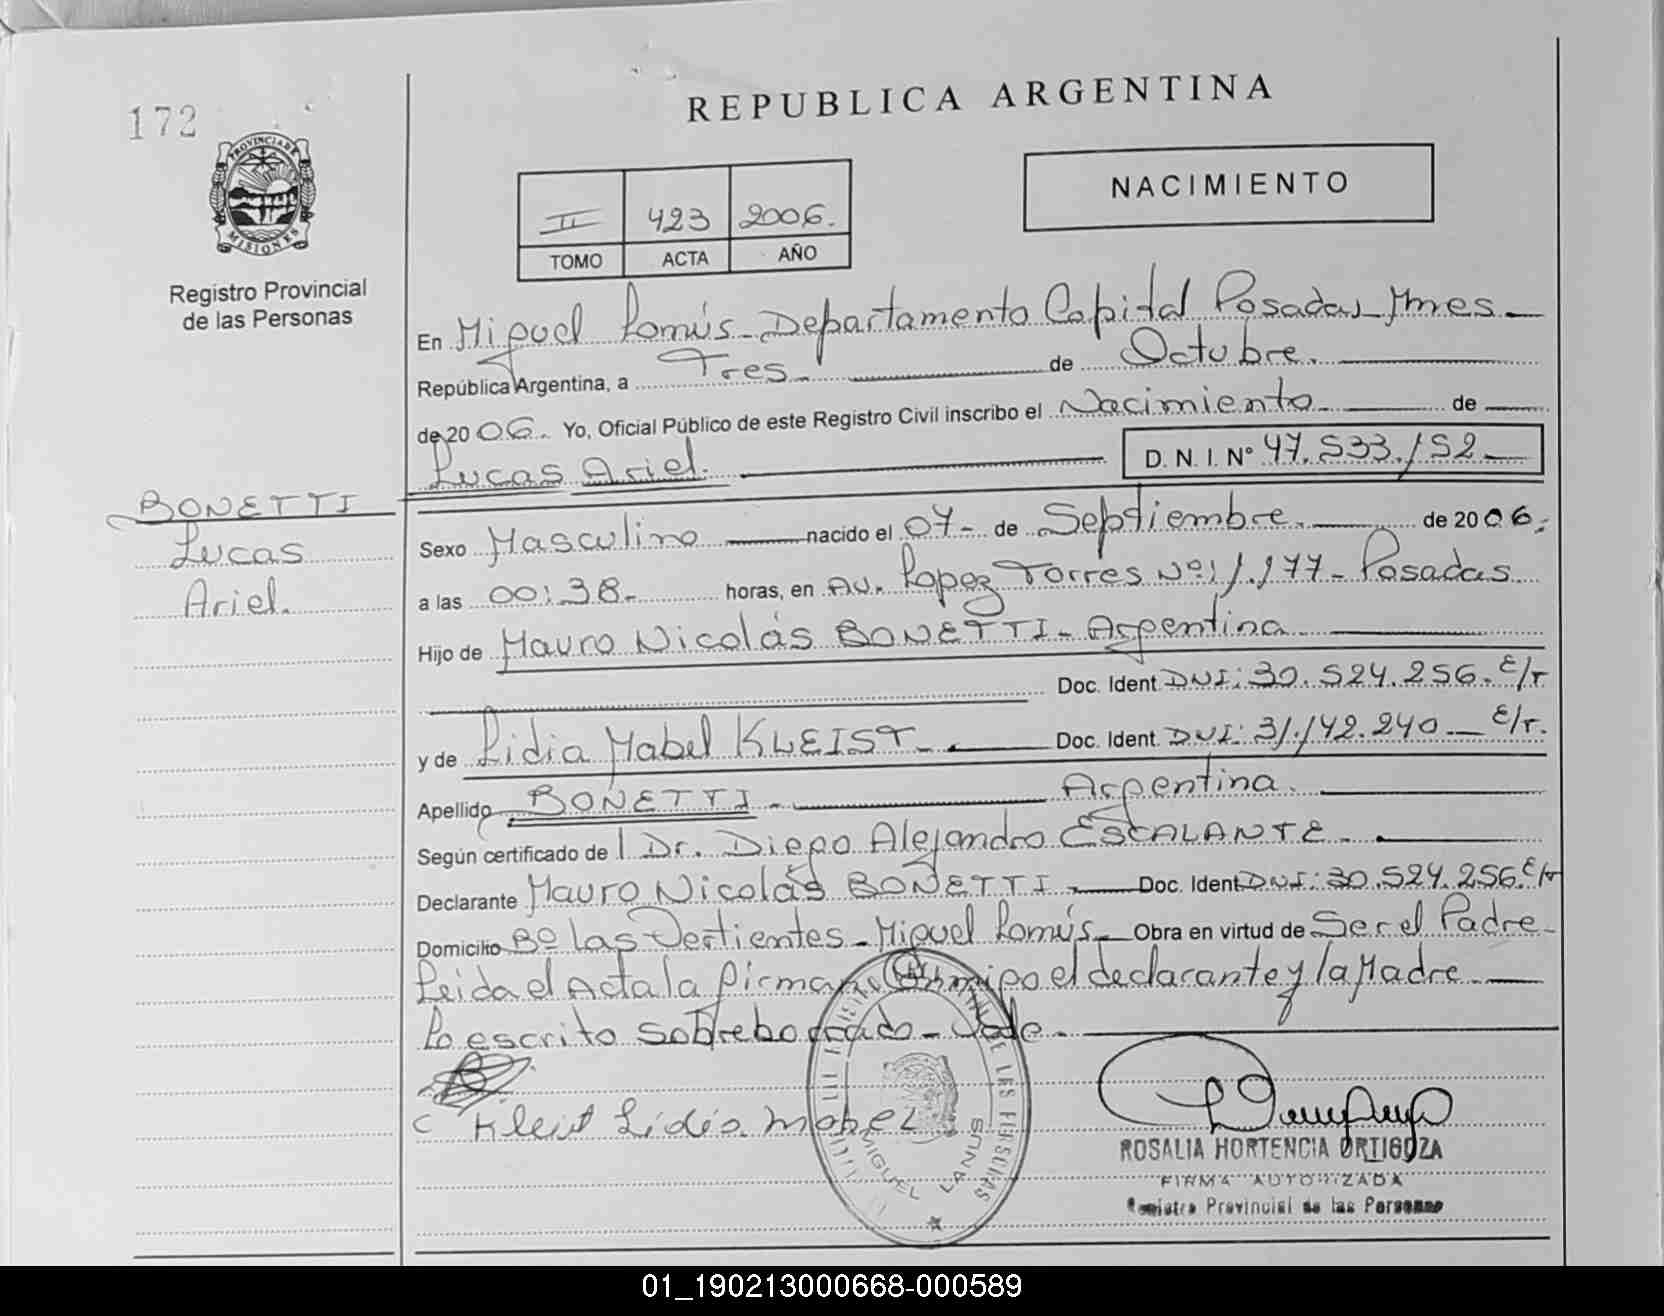 172
REPUBLICA ARGENTINA
PROVINCIA DE MISIONES
Registro Provincial
de las Personas
II 423 2006.
TOMO ACTA AÑO
NACIMIENTO
En Miguel Lanús - Departamento Capital Posadas Mnes -
República Argentina, a Tres - de Octubre.
de 2006. Yo, Oficial Público de este Registro Civil inscribo el Nacimiento - de
Lucas Ariel. D. N. I. Nº 47.533.152
BONETTI
Lucas
Ariel.
Sexo Masculino nacido el 07 - de Septiembre. de 2006.
a las 00:38. horas, en Av. Lopez Torres Nº 1.177 - Posadas
Hijo de Mauro Nicolás BONETTI - Argentina
Doc. Ident. DNI: 30.524.256. E/r
y de Lidia Mabel KLEIST - Doc. Ident. DNI: 31.142.240 - E/r.
Apellido BONETTI - Argentina.
Según certificado de Dr. Diego Alejandro ESCALANTE -
Declarante Mauro Nicolás BONETTI - Doc. Ident. DNI: 30.524.256. E/r
Domicilio Bº las Vertientes - Miguel Lanús - Obra en virtud de Ser el Padre -
Leida el Acta la firman conmigo el declarante y la Madre
Lo escrito sobreborrado - Vale -
Kleist Lidia Mabel
MIGUEL LANUS
ROSALIA HORTENCIA ORTIGOZA
FIRMA AUTORIZADA
Registro Provincial de las Personas
01_190213000668-000589